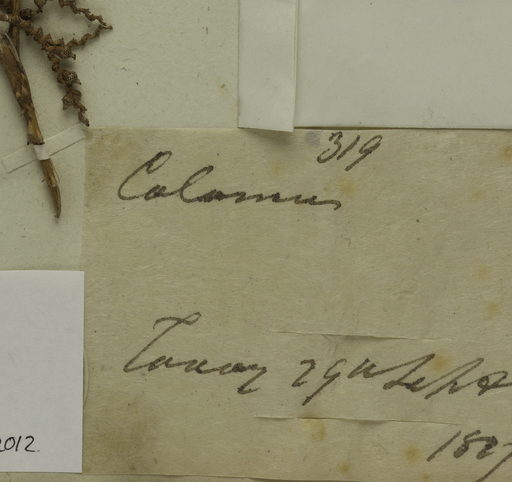 319
Calamus
Tavoy 29th Sept
1827
2012.